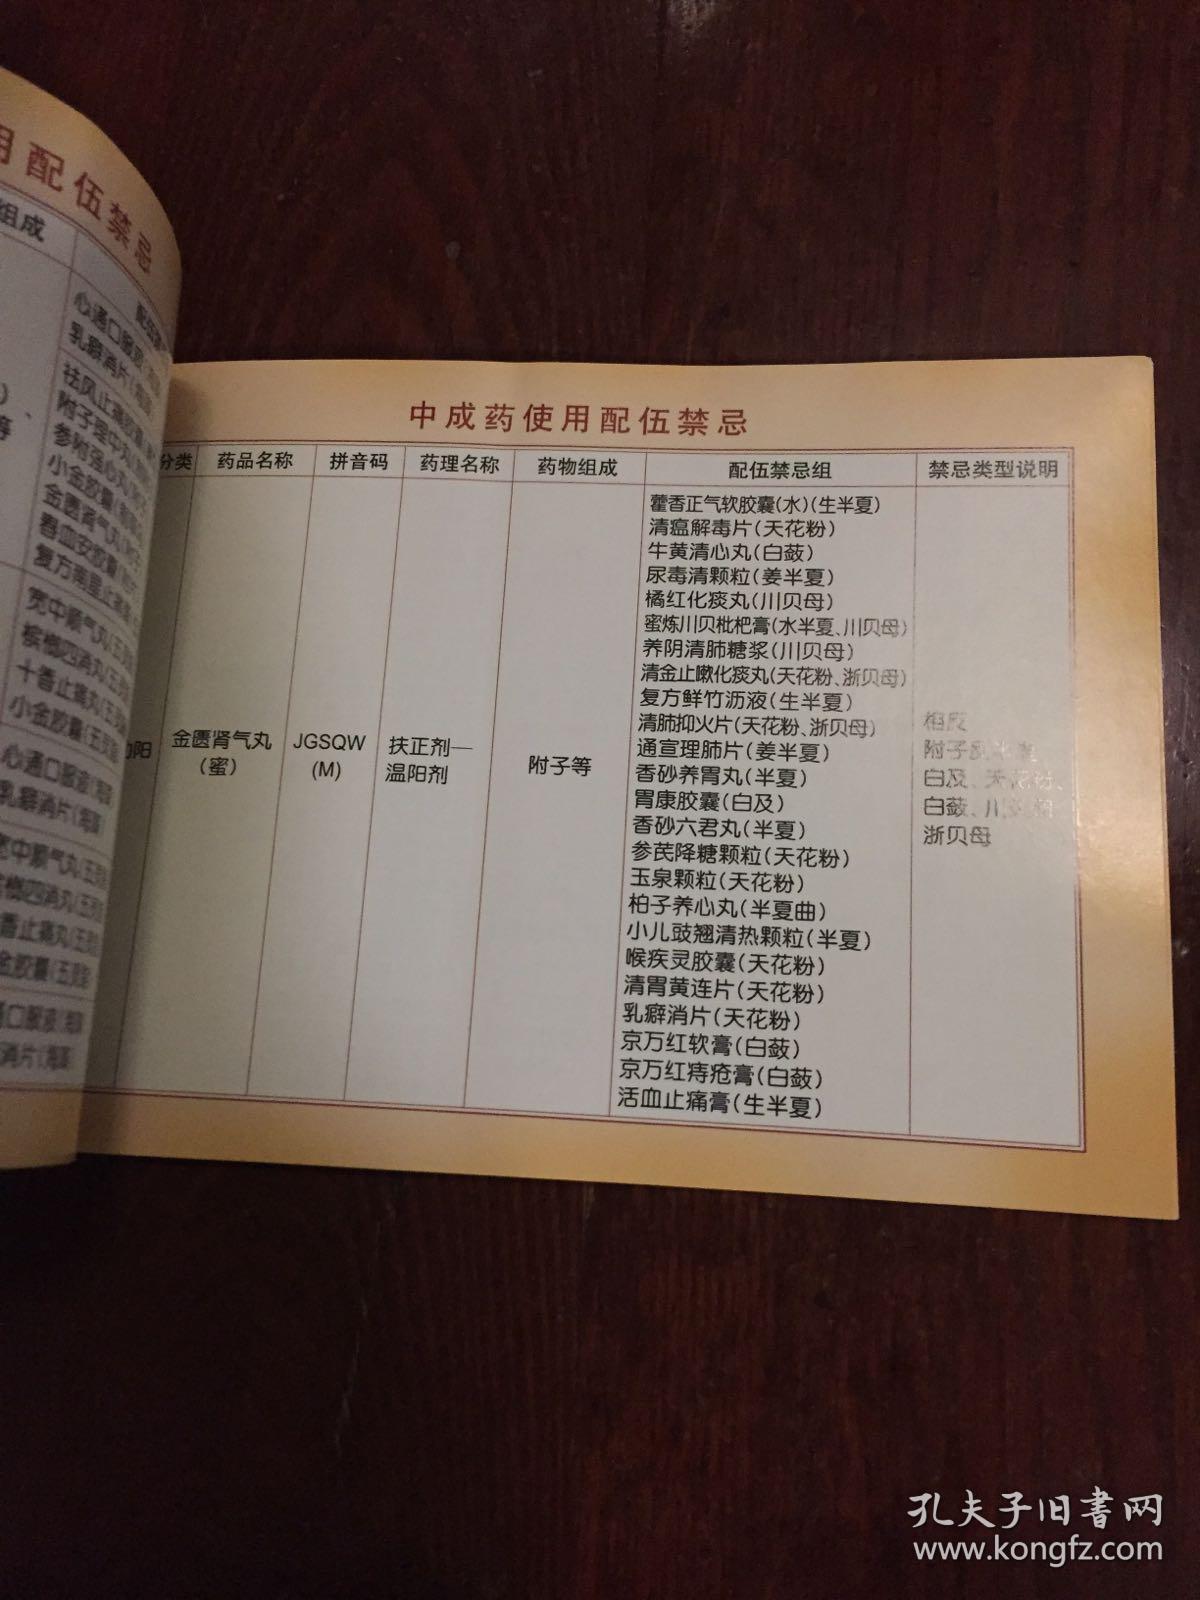 用配伍禁忌
组成
心通口服液(海藻
乳癖消片(海藻
祛风止痛胶囊
附子理中丸
参附强心丸
小金胶囊
金匮肾气丸
复方南星止痛膏
宽中顺气丸(五灵脂
槟榔四消丸(五灵脂
十香止痛丸(五灵脂
小金胶囊(五灵脂
心通口服液(海藻
乳癖消片(海藻
中成药使用配伍禁忌
分类 药品名称 拼音码 药理名称 药物组成 配伍禁忌组 禁忌类型说明
藿香正气软胶囊(水)(生半夏)
清瘟解毒片(天花粉)
牛黄清心丸(白蔹)
尿毒清颗粒(姜半夏)
橘红化痰丸(川贝母)
蜜炼川贝枇杷膏(水半夏、川贝母)
养阴清肺糖浆(川贝母)
清金止嗽化痰丸(天花粉、浙贝母)
复方鲜竹沥液(生半夏)
清肺抑火片(天花粉、浙贝母)
通宣理肺片(姜半夏)
香砂养胃丸(半夏)
胃康胶囊(白及)
香砂六君丸(半夏)
参芪降糖颗粒(天花粉)
玉泉颗粒(天花粉)
柏子养心丸(半夏曲)
小儿豉翘清热颗粒(半夏)
喉疾灵胶囊(天花粉)
清胃黄连片(天花粉)
乳癖消片(天花粉)
京万红软膏(白蔹)
京万红痔疮膏(白蔹)
活血止痛膏(生半夏)
助阳
金匮肾气丸
(蜜)
JGSQW
(M)
扶正剂—
温阳剂
附子等
相反
附子反半夏、
白及、天花粉、
白蔹、川贝母
浙贝母
孔夫子旧书网
www.kongfz.com